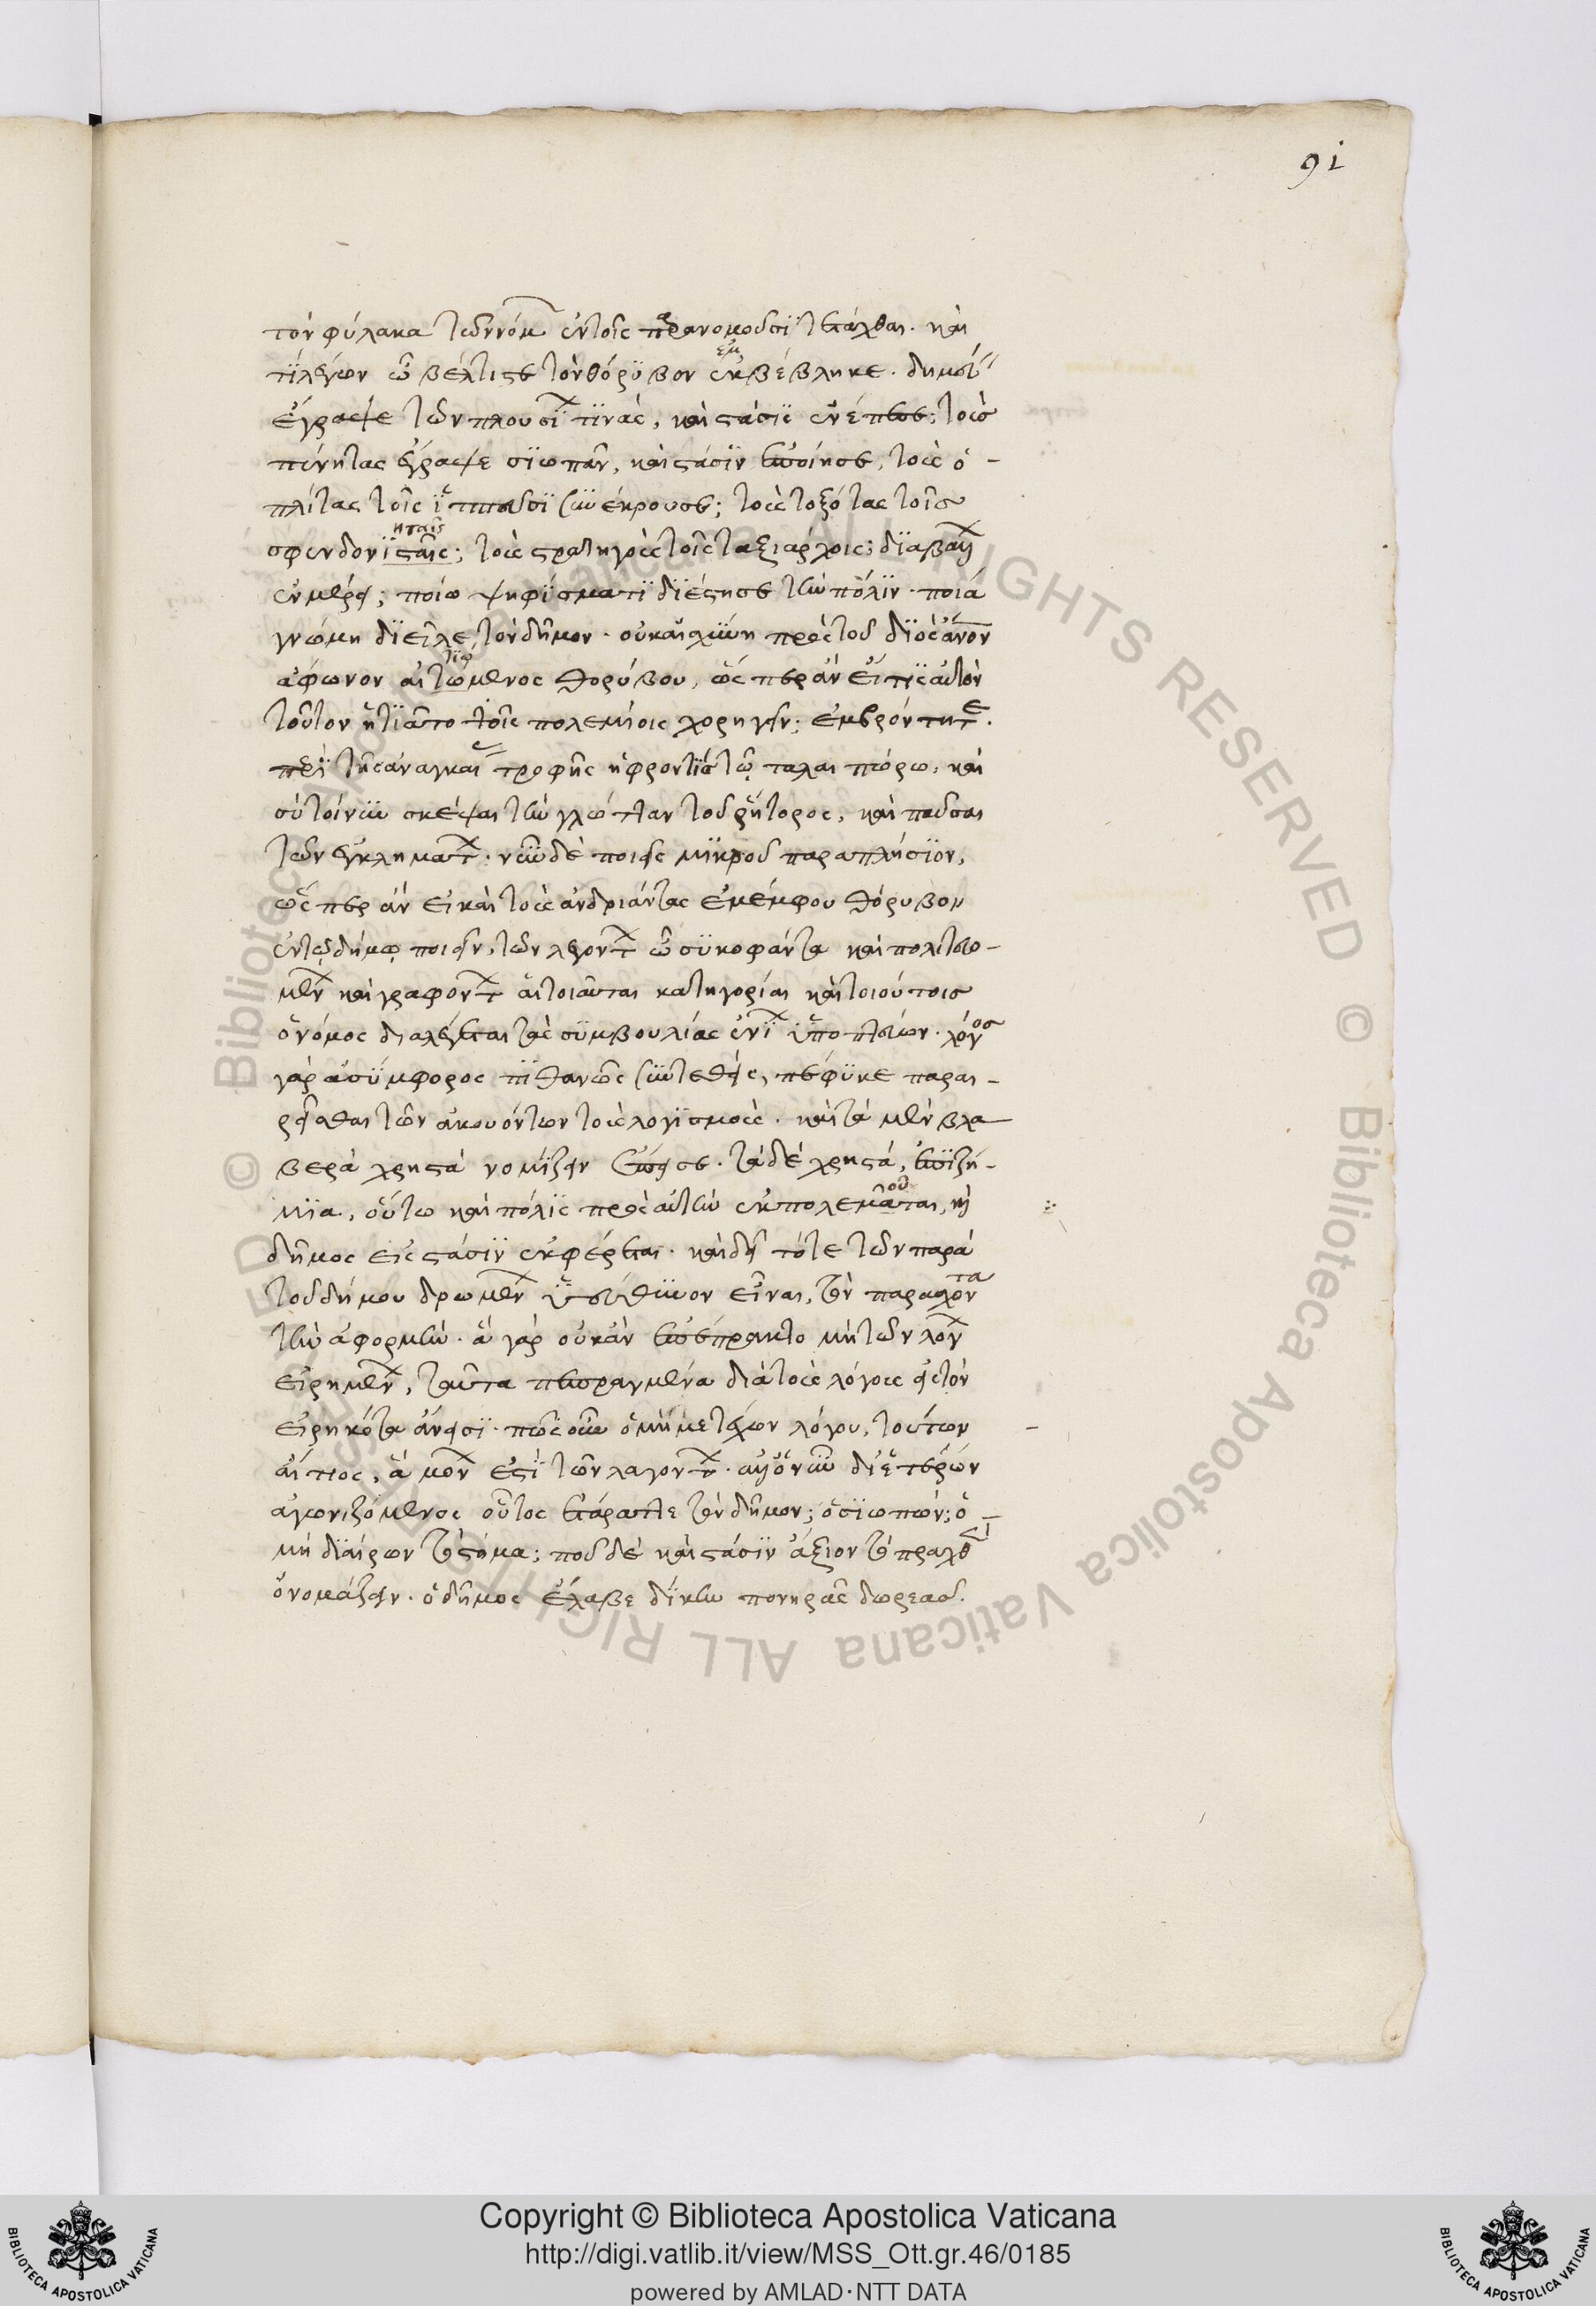 91
τὸν φύλακα τῶν νόμ ἐν τοῖς παρανομοῦσι τετάχθαι. καὶ
τί λέγων ὦ βέλτιστε τὸν θόρυβον ἐκβέβληκε. δημοσί
ἐμ
ἔγραψε τῶν πλουσί τινὰς, καὶ στάσις ἐνέπεσε; τοὺς
πένητας ἔγραψε σιωπᾶν, καὶ στάσιν ἐποίησε, τοὺς ὁ-
πλίτας τοῖς ἱππεῦσι συνέκρουσε; τοὺς τοξότας τοῖς
σφενδονισταῖς; τοὺς στρατηγοὺς τοῖς ταξιάρχοις;
ηταῖς
ἐν μέρει; ποίῳ ψηφίσματι διέστησε τὴν πόλιν. ποίᾳ
γνώμῃ διεῖλε τὸν δῆμον. οὐκ αἰσχύνῃ πρὸς τοῦ διὸς ἄνον
ἄφωνον αἰτώμενος θορύβου, ὥσπερ ἂν εἴ τις αὐτὸν
τιώ
τοῦτον ᾐτιᾶτο τοῖς πολεμίοις χορηγεῖν; ἐμβρόντητε.
περὶ τῆς ἀναγκαί τροφῆς ἠφροντιστ τῷ ταλαιπώρῳ, καὶ
σὺ τοίνυν σκέψαι τὴν γλῶτταν τοῦ ῥήτορος, καὶ παῦσαι
τῶν ἐγκλημάτ. νῦν δὲ ποιεῖς μικροῦ παραπλήσιον,
ὥσπερ ἂν εἰ καὶ τοὺς ἀνδριάντας ἐμέμφου θόρυβον
ἐν τῷ δήμῳ ποιεῖν, τῶν λεγόντ ὦ συκοφάντα καὶ πολιτευο-
μέν καὶ γραφόντ αἱ τοιαῦται κατηγορίαι καὶ τοιούτοις
ὁ νόμος διαλέγεται τὰς συμβουλίας ἐνί ὑποπτεύων. λόγος
γὰρ ἀσύμφορος πιθανῶς συντεθεὶς, πέφυκε παραι-
ρεῖσθαι τῶν ἀκουόντων τοὺς λογισμοὺς. καὶ τὰ μὲν βλα
βερὰ χρηστὰ νομίζειν ἔπεισε. τὰ δὲ χρηστὰ, ἐπιζή-
μια, οὕτω καὶ πόλις πρὸς αὐτὴν ἐκπολεμᾶται, καὶ
οῦ
δῆμος εἰς στάσιν ἐκφέρεται. καὶ δεῖ τότε τῶν παρὰ
τοῦ δήμου δρωμέν ὑπεύθυνον εἶναι, τὸν παρασχόντα
τὴν ἀφορμὴν. ἃ γὰρ οὐκ ἂν ἐπέπρακτο μὴ τῶν λόγ
εἰρημέν, ταῦτα πεπραγμένα διὰ τοὺς λόγους εἰς τὸν
εἰρηκότα ἄνεισι. πῶς οὖν ὁ μὴ μετέχων λόγου, τούτων
αἴτιος, ἃ μόν ἐστὶ τῶν λαγόντ.
ἀγωνιζόμενος οὗτος ἐτάραττε τὸν δῆμον; ὁ σιωπῶν; ὁ
μὴ διαίρων τὸ στόμα; ποῦ δὲ καὶ στάσιν ἄξιον τὸ πραχθὲν
ὀνομάζειν. ὁ δῆμος ἔλαβε δίκην πονηρᾶς δωρεᾶς.
Copyright © Biblioteca Apostolica Vaticana
http://digi.vatlib.it/view/MSS_Ott.gr.46/0185
powered by AMLAD·NTT DATA
BIBLIOTECA APOSTOLICA VATICANA
BIBLIOTECA APOSTOLICA VATICANA
© Biblioteca Apostolica Vaticana ALL RIGHTS RESERVED © Biblioteca Apostolica Vaticana ALL RIGHTS RESERVED